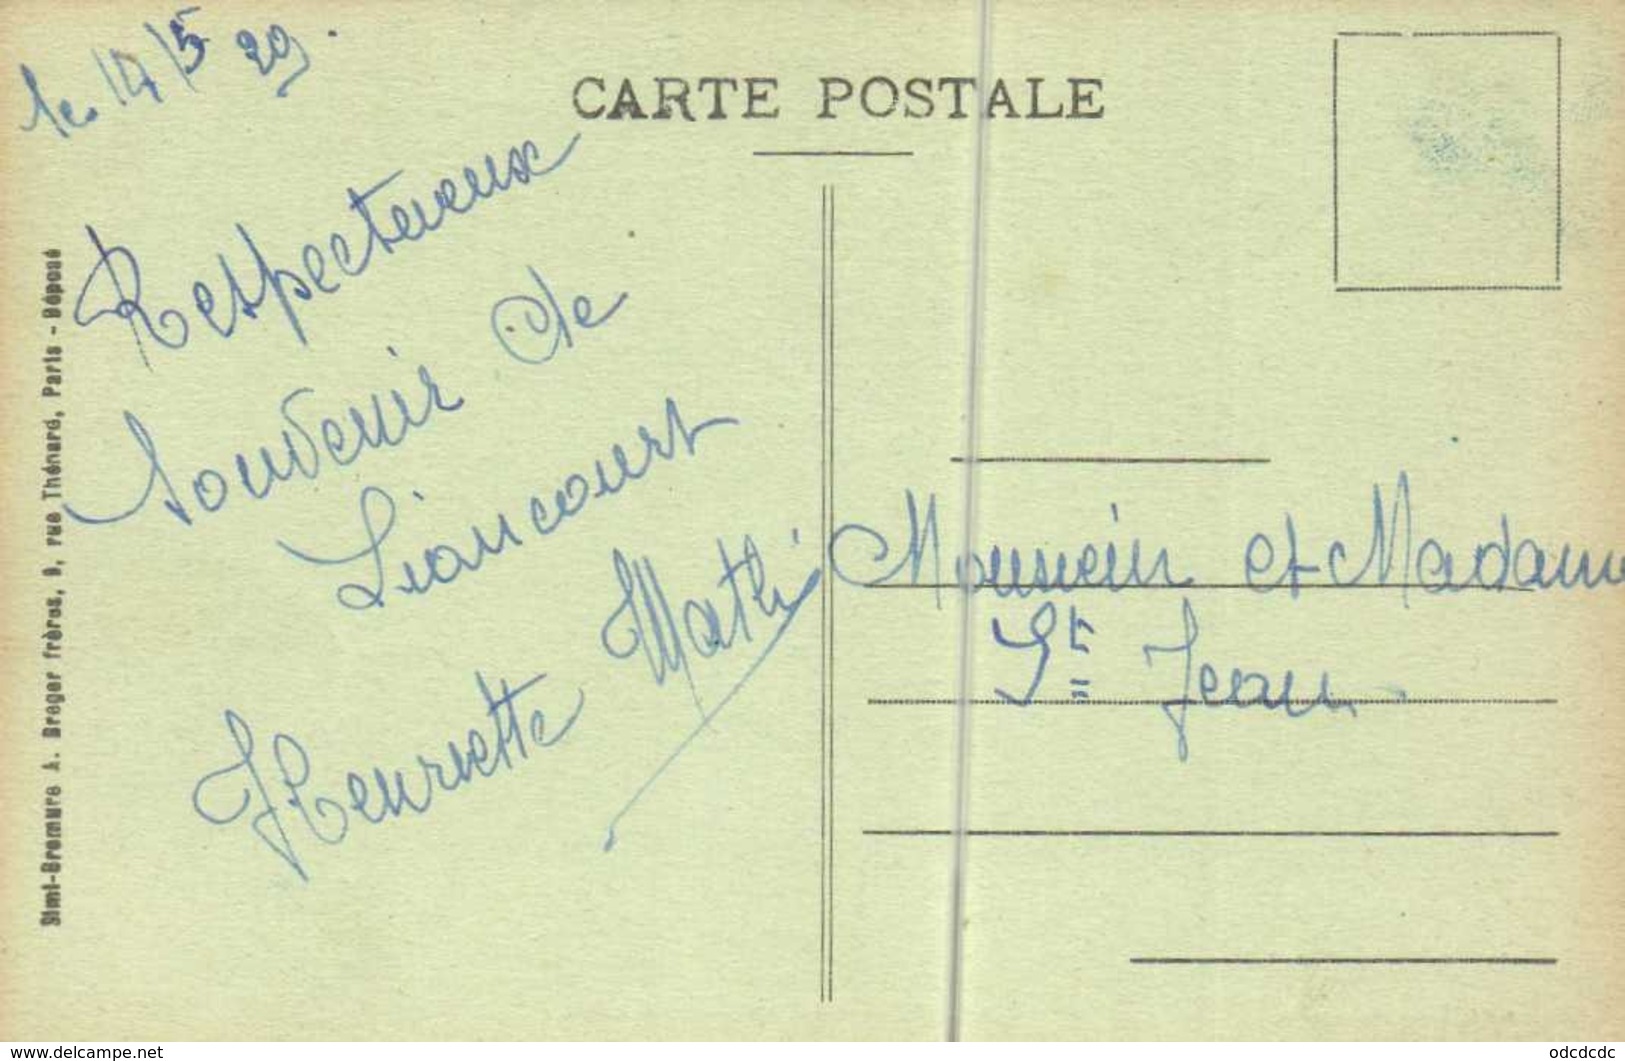 le 14/5 29.
CARTE POSTALE
Respectueux
souvenir de
Liancourt
Henriette Mathi
Monsieur et Madame
St Jean
Simi-Bromure A. Breger frères, 9, rue Thénard, Paris - Déposé
www.delcampe.net
odcdcdc